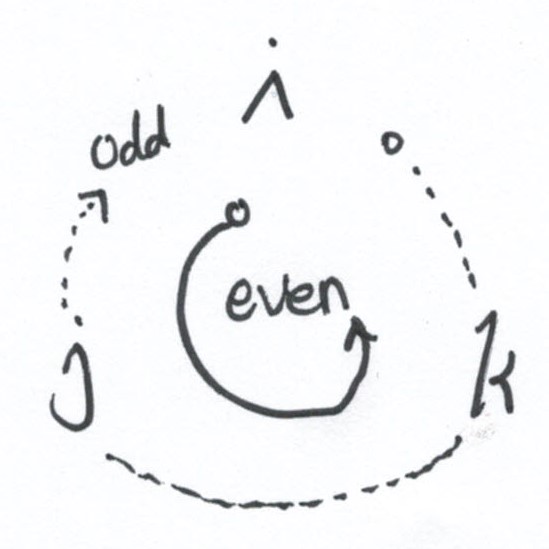 i
odd
even
J k